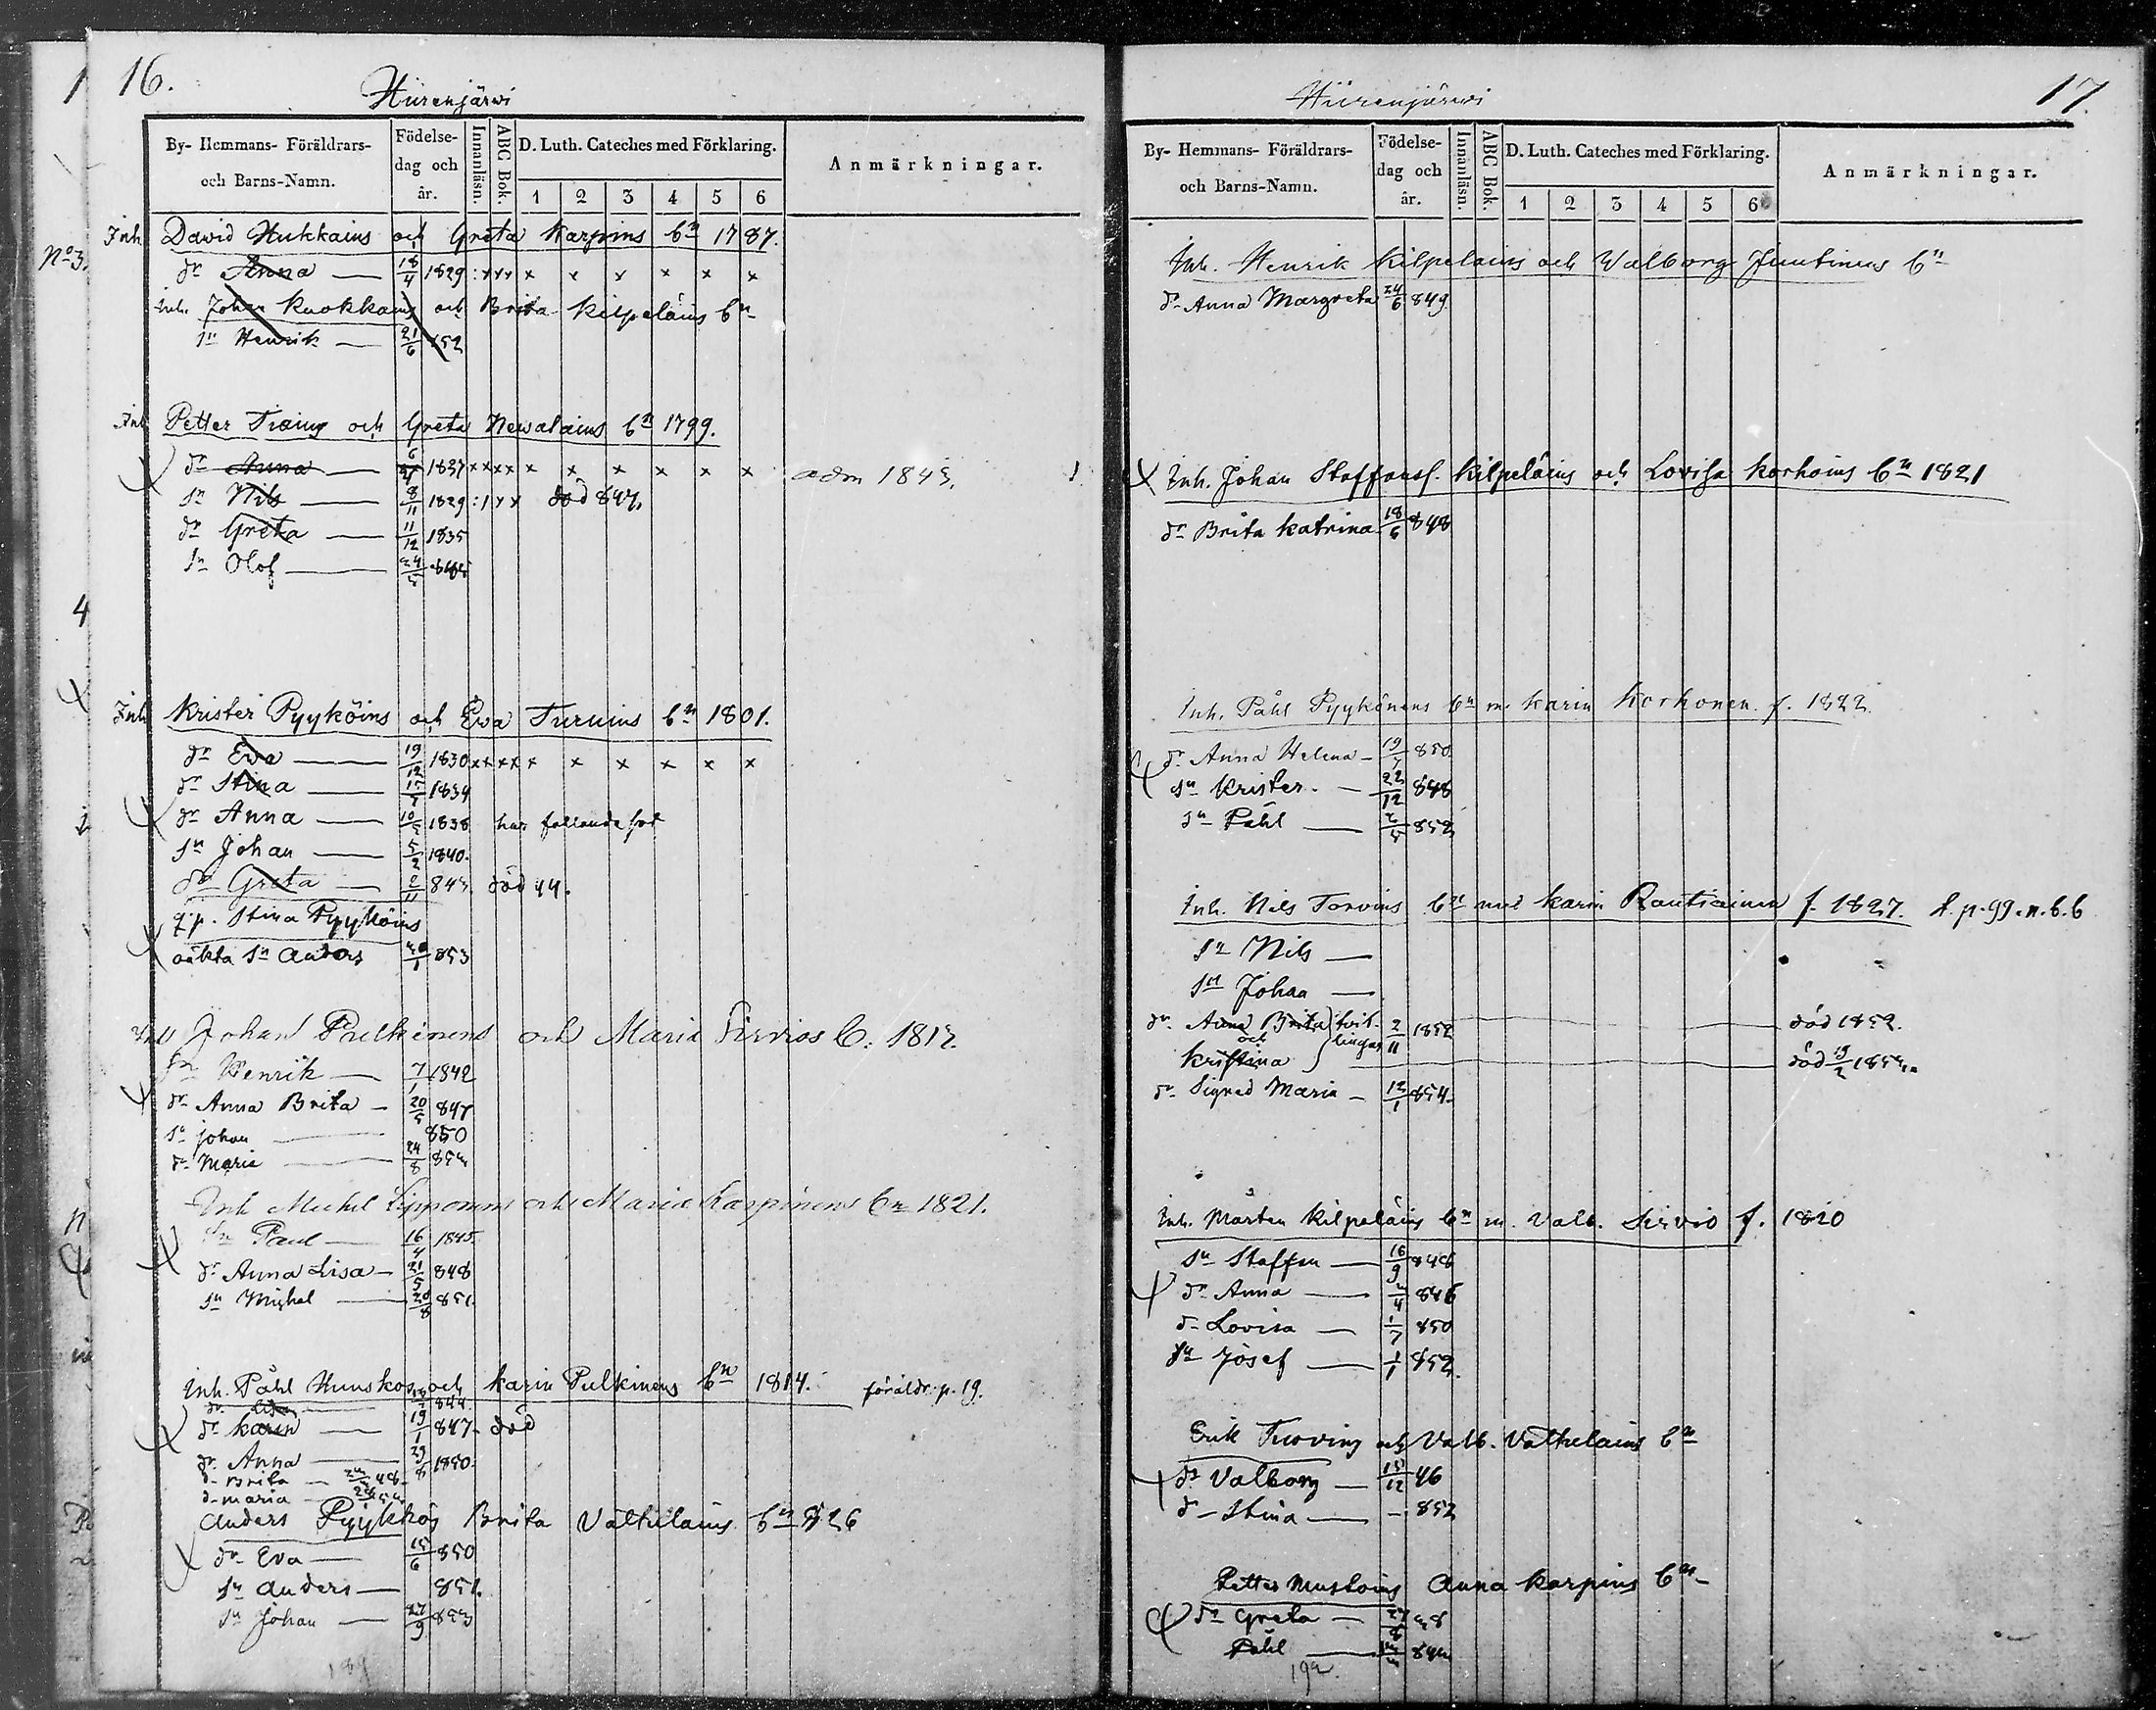 16.
Hiirenjärwi
By- Hemmans- Föräldrars- och Barns-Namn.
Födelse- dag och år.
Innanläsn.
ABC Bok.
D. Luth. Cateches med Förklaring.
1 2 3 4 5 6
Anmärkningar.
Inh David Hukkains och Greta Karpins bn 1787.
dr Anna — 18/4 1829 : x x x x x x x x x
Inh. Johan Kuokkains och Brita Kilpeläins bn
sn Henrik — 21/6 852
Inh Petter och Greta Newalains bn 1799.
dr Anna — 1837 x x x x x x x x x x adm 1843.
sn Nils — 8/11 1829 död 847.
dr Greta — 11/12 1835
sn Olof — 24/5
Inh Krister Pyyköins och Ewa Turuins bn 1801.
dr Ewa — 19/12 1830 x x x x x x x x x x
dr Stina — 1834
dr Anna — 10/5 1838 har fallande sot
sn Johan — 5/2 1840.
dr Greta — 2/11 843 död 44.
q.p. Stina Pyyköins
oäkta sn Anders 853
Inh Johan Pulkinens och Maria Sirviös b. 1813.
sn Henrik — 7/1 1842
dr Anna Brita — 20/5 847
sn Johan — 850
dr Maria — 24/8 853
Inh Michel Sipponens och Maria Karpinens bn 1821.
sn Paul — 16/4 1845
dr Anna Lisa — 21/5 848
sn Michel — 28/8 851.
Inh. Påhl Huusko och Karin Pulkinens bn 1814. föräldr. p. 19.
dr Lisa — 844
dr Karin — 19/1 847 död
dr Anna — 29/8 1850.
d- Brita — 48
d- Maria —
Anders Pyykkös Brita Väthiläins bn 826
dr Eva — 15/6 850
sn Anders — 851.
sn Johan — 27/9 853
189
17.
Hiirenjärwi
By- Hemmans- Föräldrars- och Barns-Namn.
Födelse- dag och år.
Innanläsn.
ABC Bok.
D. Luth. Cateches med Förklaring.
1 2 3 4 5 6
Anmärkningar.
Inh. Henrik Kilpeläins och Walborg Juntinens bn
dr Anna Margreta 24/6 849.
Inh. Johan Staffansf. Kilpeläins och Lovisa Korhoins bn 1821
dr Brita Katrina 18/6 848
Inh. Påhl Pyykönens bn m. Karin Korhonen f. 1822.
dr Anna Helena — 19/7 850
sn Krister — 22/12 848
sn Påhl — 852
Inh. Nils Torvins bn med Karin Rautiainen f. 1827. f. p. 99. n. b. b
sn Nils —
sn Johan —
dr Anna Brita och tvillingar 2/11 1852 — död 1852.
Kristina — död 19/2 1853.
dr Signed Maria — 12/1 854
Inh. Mårten Kilpeläins bn m. Valb. Sirviö f. 1820
sn Staffan — 16/9 848
dr Anna — 3/4 846
d- Lovisa — 1/7 850
sn Josef — 1/1 852.
Erik Turving och Valb. Väthiläins bn
dr Valborg — 15/12 46
d- Stina — 852
Petter Mustoins Anna Karpins bn
dr Greta — 27/8
Påhl —
192.